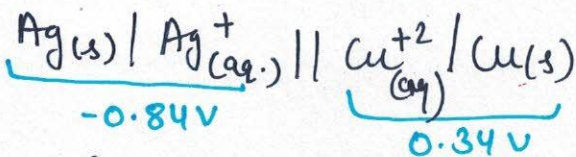 Ag(s) | Ag⁺(aq.) || Cu⁺²(aq) / Cu(s)
-0.84V 0.34V